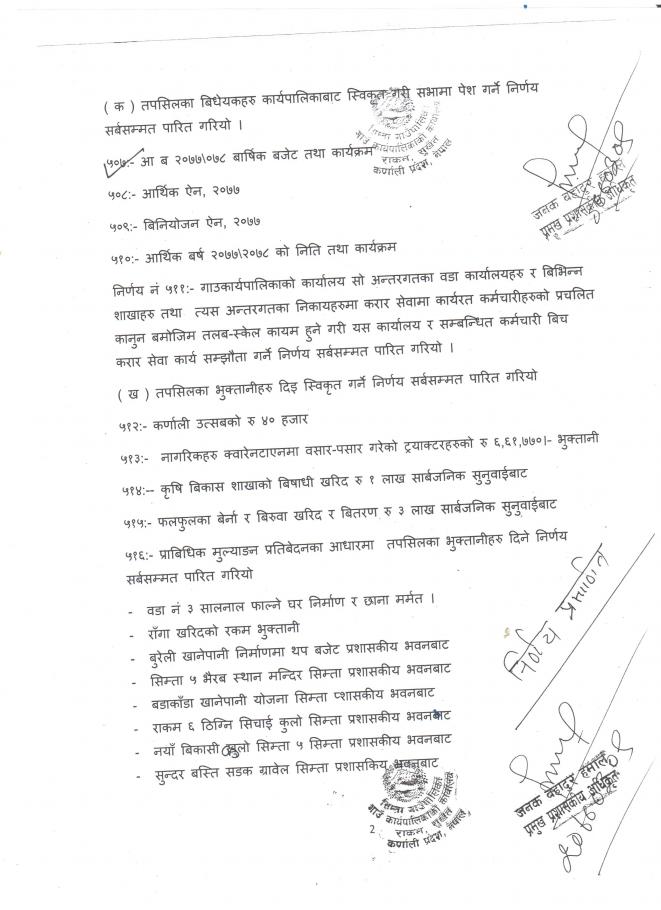 ( क ) तपसिलका बिधेयकहरु कार्यपालिकाबाट स्विकृत गरी सभामा पेश गर्ने निर्णय
सर्बसम्मत पारित गरियो ।
५०७:- आ ब २०७७\०७८ बार्षिक बजेट तथा कार्यक्रम
५०८:- आर्थिक ऐन, २०७७
५०९:- बिनियोजन ऐन, २०७७
५१०:- आर्थिक बर्ष २०७७\२०७८ को निति तथा कार्यक्रम
निर्णय नं ५११:- गाउकार्यपालिकाको कार्यालय सो अन्तरगतका वडा कार्यालयहरु र बिभिन्न
शाखाहरु तथा त्यस अन्तरगतका निकायहरुमा करार सेवामा कार्यरत कर्मचारीहरुको प्रचलित
कानुन बमोजिम तलब-स्केल कायम हुने गरी यस कार्यालय र सम्बन्धित कर्मचारी बिच
करार सेवा कार्य सम्झौता गर्ने निर्णय सर्बसम्मत पारित गरियो ।
( ख ) तपसिलका भुक्तानीहरु दिइ स्विकृत गर्ने निर्णय सर्बसम्मत पारित गरियो
५१२:- कर्णाली उत्सबको रु ४० हजार
५१३:- नागरिकहरु क्वारेनटाएनमा वसार-पसार गरेको ट्रयाक्टरहरुको रु ६,६१,७७०।- भुक्तानी
५१४:-- कृषि बिकास शाखाको बिषाधी खरिद रु १ लाख सार्बजनिक सुनुवाईबाट
५१५:- फलफुलका बेर्ना र बिरुवा खरिद र बितरण रु ३ लाख सार्बजनिक सुनुवाईबाट
५१६:- प्राबिधिक मुल्याङन प्रतिबेदनका आधारमा तपसिलका भुक्तानीहरु दिने निर्णय
सर्बसम्मत पारित गरियो
- वडा नं ३ सालनाल फाल्ने घर निर्माण र छाना मर्मत ।
- राँगा खरिदको रकम भुक्तानी
- बुरेली खानेपानी निर्माणमा थप बजेट प्रशासकीय भवनबाट
- सिम्ता ५ भैरब स्थान मन्दिर सिम्ता प्रशासकीय भवनबाट
- बडाकाँडा खानेपानी योजना सिम्ता प्शासकीय भवनबाट
- राकम ६ ठिग्नि सिचाई कुलो सिम्ता प्रशासकीय भवनबाट
- नयाँ बिकासी कुलो सिम्ता ५ सिम्ता प्रशासकीय भवनबाट
- सुन्दर बस्ति सडक ग्रावेल सिम्ता प्रशासकिय भवनबाट
2
सिम्ता गाउँपालिका
गाउँ कार्यपालिकाको कार्यालय
राकम, सुर्खेत
कर्णाली प्रदेश, नेपाल
जनक बहादुर
प्रमुख प्रशासकीय अधिकृत
निर्णय प्रमाणित
जनक बहादुर हमाल
प्रमुख प्रशासकीय अधिकृत
सिम्ता गाउँपालिका
गाउँ कार्यपालिकाको कार्यालय
राकम, सुर्खेत
कर्णाली प्रदेश, नेपाल